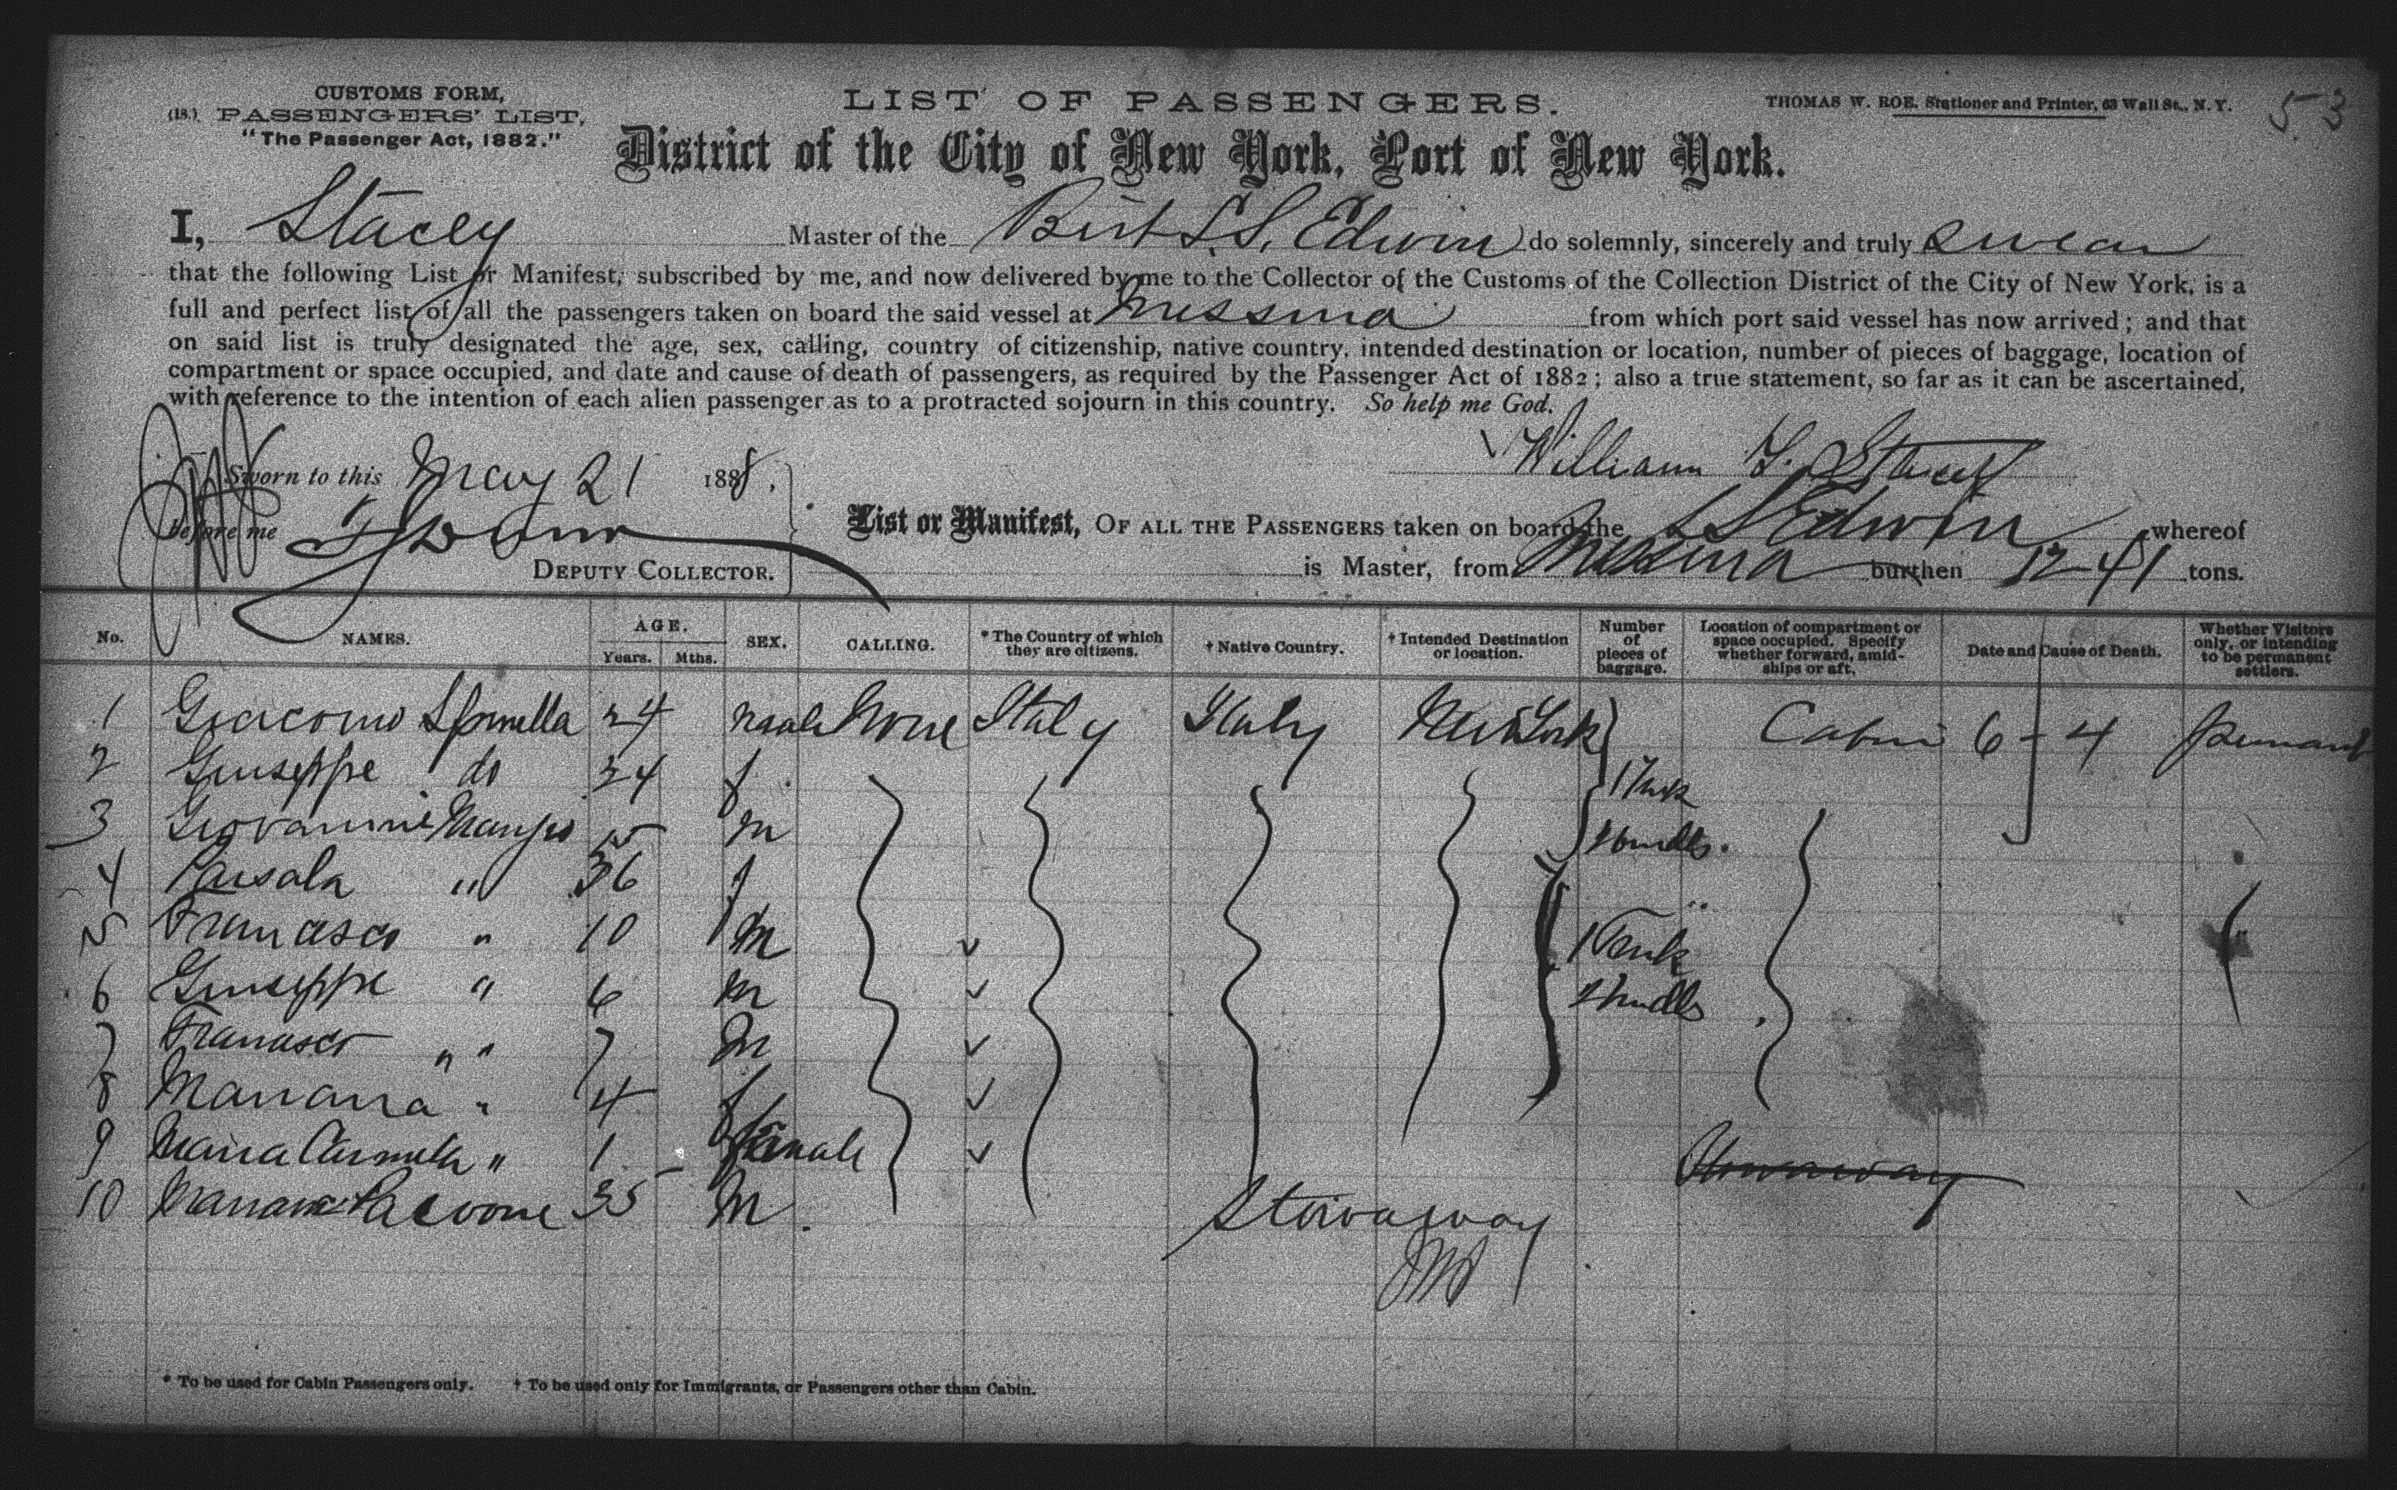 CUSTOMS FORM,
(18.) PASSENGERS' LIST,
"The Passenger Act, 1882."
LIST OF PASSENGERS.
THOMAS W. ROE, Stationer and Printer, 63 Wall St., N.Y.
53
District of the City of New York, Port of New York.
I, Stacey Master of the Brit S.S. Edwin do solemnly, sincerely and truly swear
that the following List or Manifest, subscribed by me, and now delivered by me to the Collector of the Customs of the Collection District of the City of New York, is a
full and perfect list of all the passengers taken on board the said vessel at Messina from which port said vessel has now arrived; and that
on said list is truly designated the age, sex, calling, country of citizenship, native country, intended destination or location, number of pieces of baggage, location of
compartment or space occupied, and date and cause of death of passengers, as required by the Passenger Act of 1882; also a true statement, so far as it can be ascertained,
with reference to the intention of each alien passenger as to a protracted sojourn in this country. So help me God.
Sworn to this May 21 1888,
William Stacey
before me
DEPUTY COLLECTOR.
List or Manifest, OF ALL THE PASSENGERS taken on board the SS Edwin whereof
is Master, from Messina burthen 1241 tons.
No. NAMES. AGE. Years. Mths. SEX. CALLING. * The Country of which they are citizens. † Native Country. † Intended Destination or location. Number of pieces of baggage. Location of compartment or space occupied. Specify whether forward, amidships or aft. Date and Cause of Death. Whether Visitors only, or intending to be permanent settlers.
1 Giacomo 24 male None Italy Italy New York Cabin 6 - 4
2 Giuseppe do 24 f
3 Giovannine m
4 " 36 f
5 Francisco " 10 m
6 Giuseppe " 6 m
7 Francisco " " 7 m
8 Mariana " 4 f
9 Maria Carmela " 1 female Stowaway
10 35 M. Stowaway
* To be used for Cabin Passengers only. † To be used only for Immigrants, or Passengers other than Cabin.